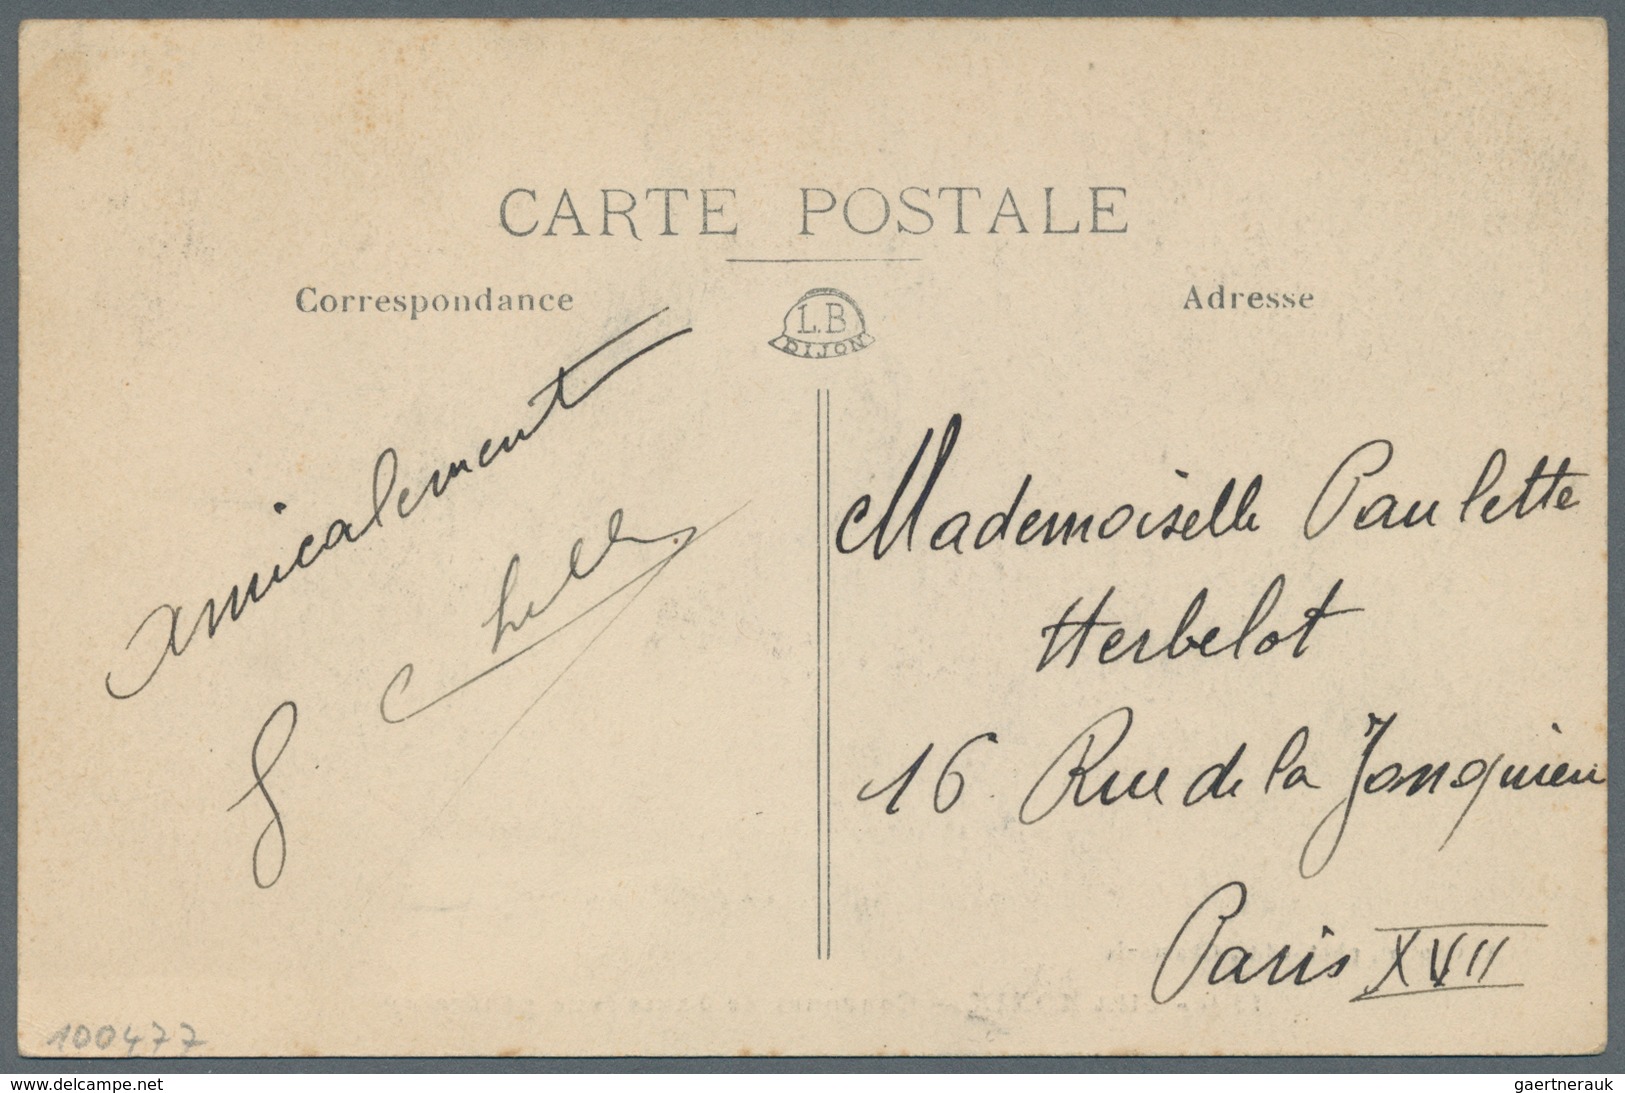 CARTE POSTALE
Correspondance
L.B
DIJON
Adresse
Amicalement
Mademoiselle Paulette
Herbelot
16 Rue de la Jonquière
Paris XVII
100477
www.delcampe.net
gaertnerauk